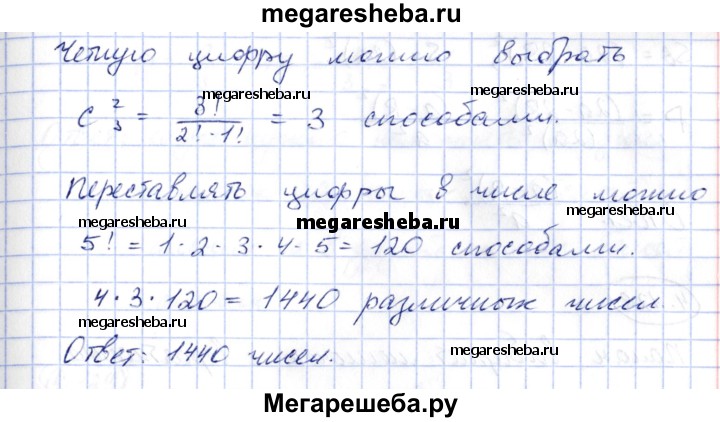 megaresheba.ru
Четную цифру можно выбрать
megaresheba.ru megaresheba.ru
C₃² = 3! / 2!·1! = 3 способами.
megaresheba.ru megaresheba.ru
Переставлять цифры в числе можно
megaresheba.ru megaresheba.ru megaresheba.ru
5! = 1·2·3·4·5 = 120 способами.
4·3·120 = 1440 различных чисел.
megaresheba.ru
Ответ: 1440 чисел.
megaresheba.ru
Мегарешеба.ру